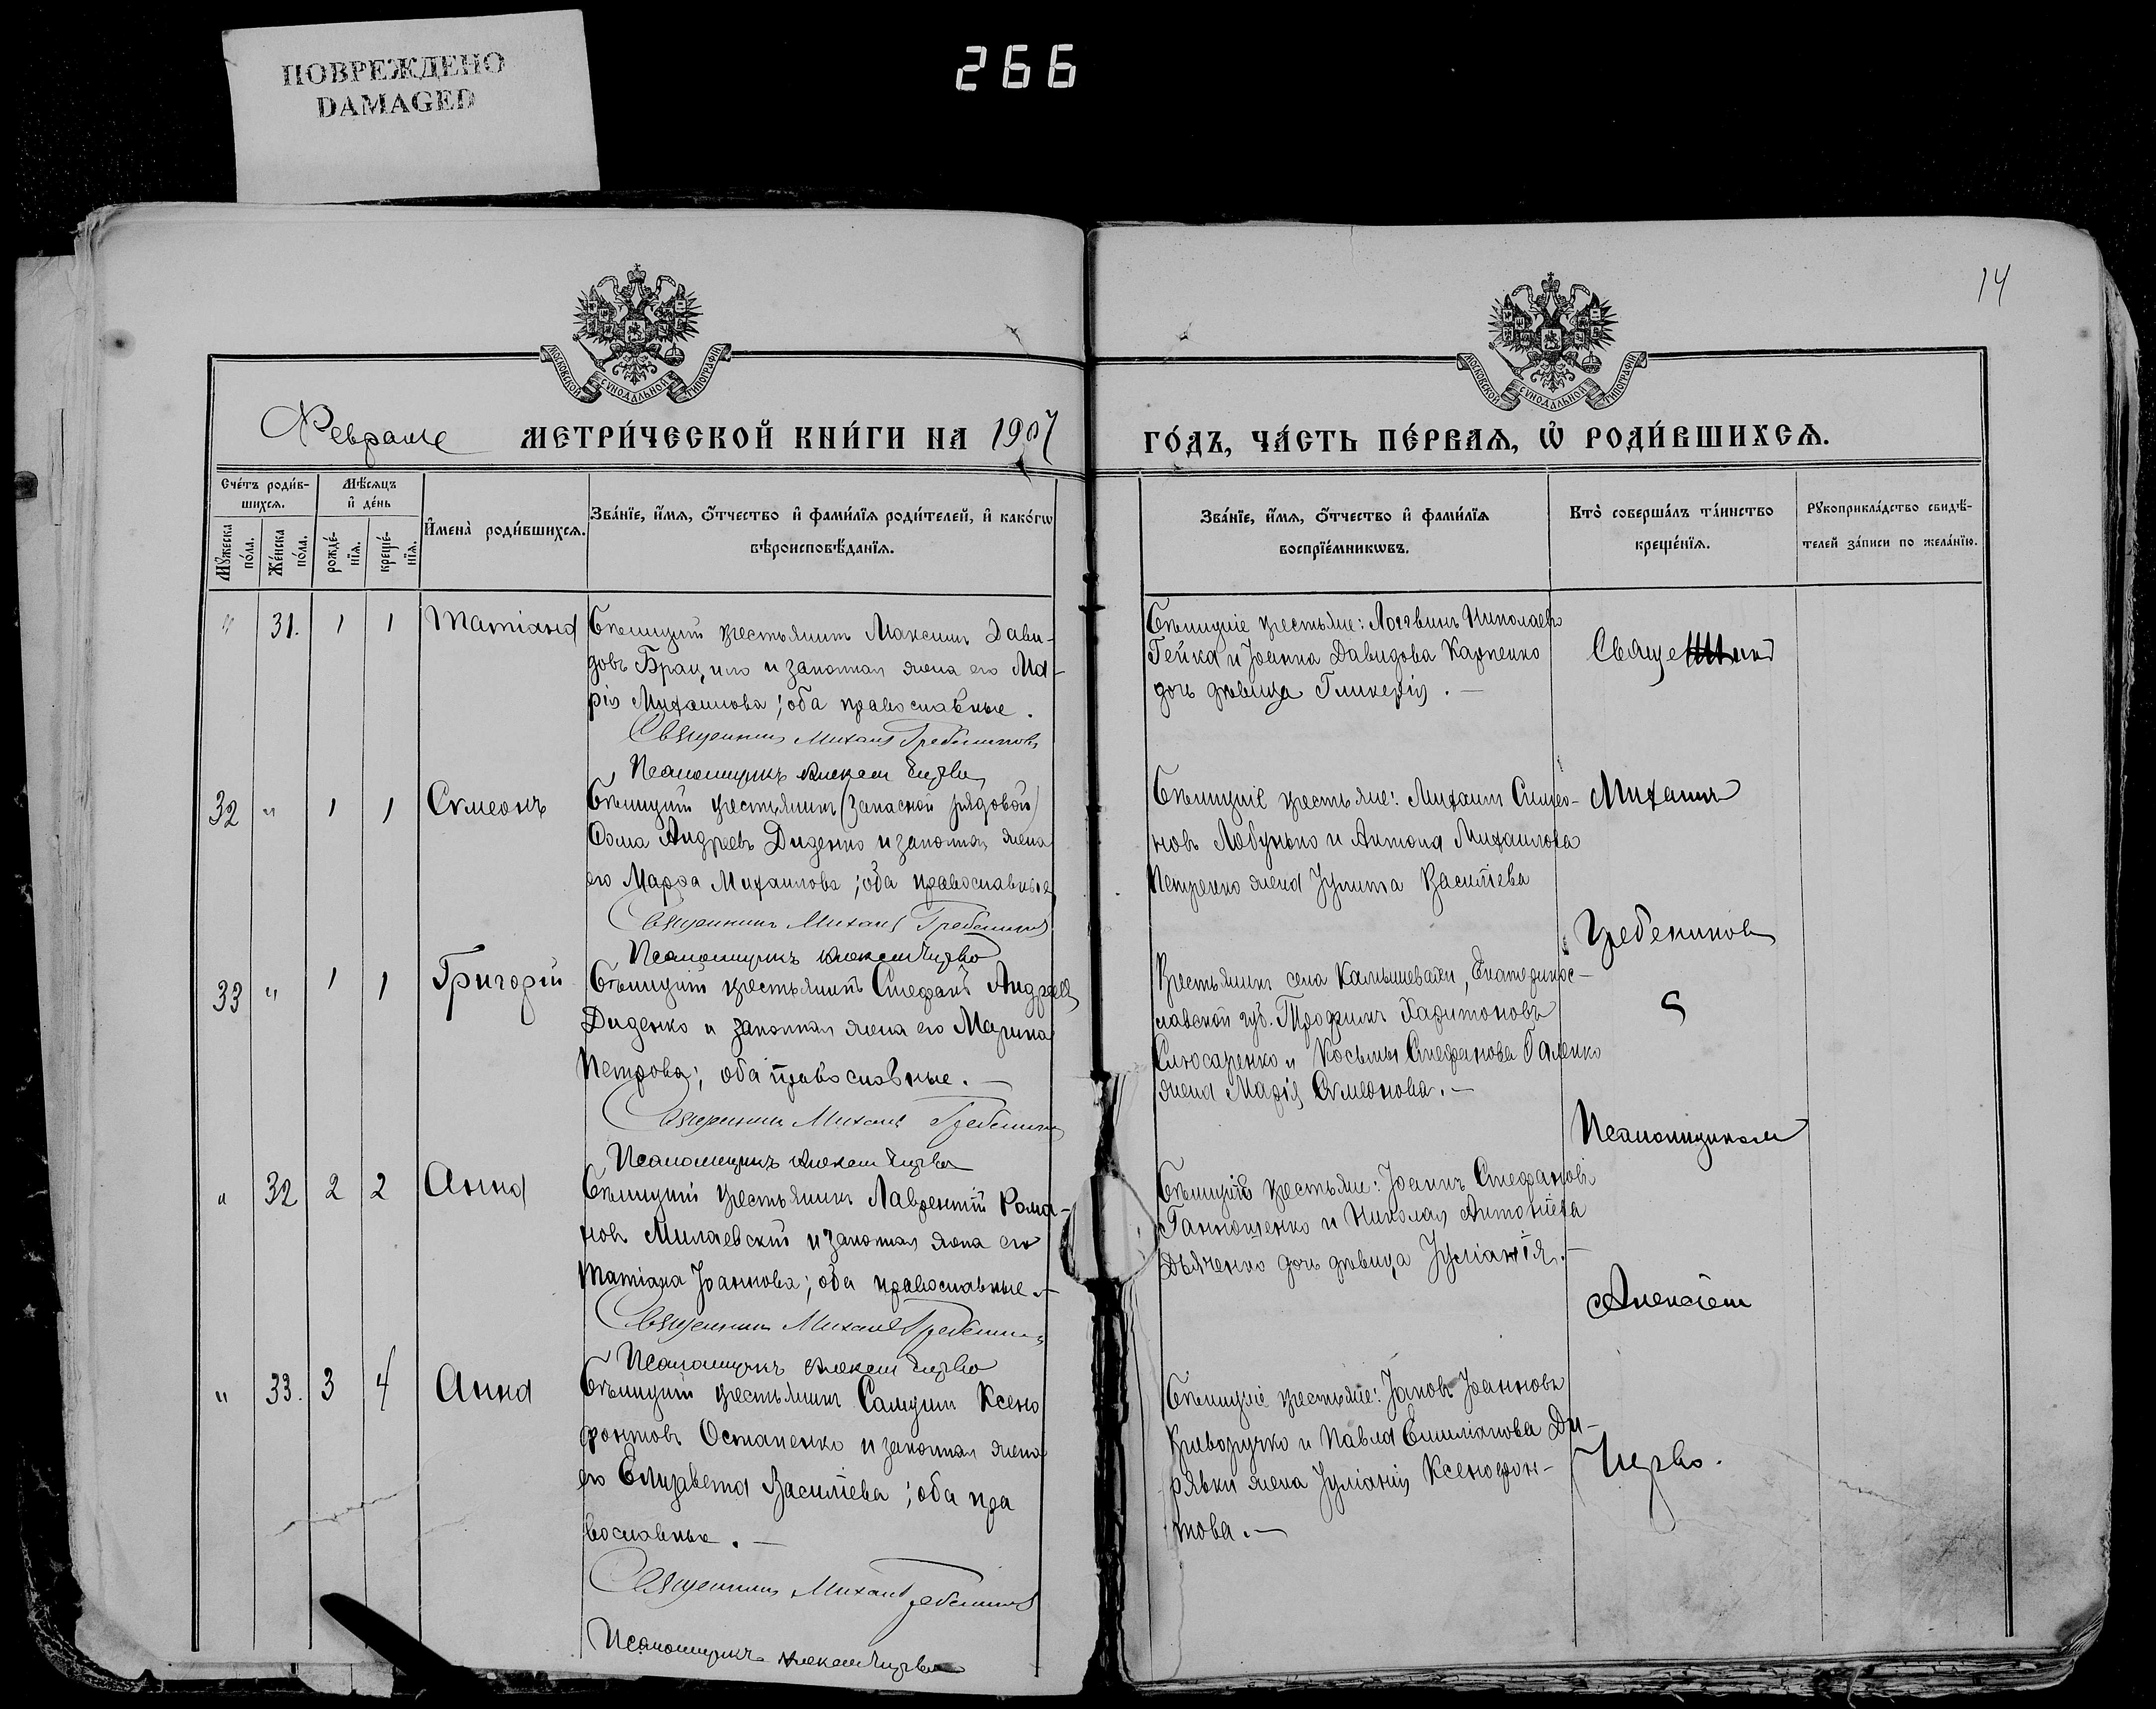 ПОВРЕЖДЕНО
DAMAGED
266
14
МОСКОВСКОЙ СѴНОДАЛЬНОЙ ТИПОГРАФІИ
МОСКОВСКОЙ СѴНОДАЛЬНОЙ ТИПОГРАФІИ
Февраль МЕТРИ́ЧЕСКОЙ КНИ́ГИ НА 1907
ГО́ДЪ, ЧА́СТЬ ПЕ́РВАѦ, Ѡ҆ РОДИ́ВШИХСѦ.
Сче́тъ роди́вшихсѧ.
Мꙋ́жеска по́ла.
Же́нска по́ла.
Мѣ́сѧцъ и҆ де́нь
рожде́нїѧ.
креще́нїѧ.
И҆мена̀ роди́вшихсѧ.
Зва́нїе, и҆́мѧ, ѻ҆́тчество и҆ фами́лїѧ роди́телей, и҆ како́гѡ
вѣроисповѣ́данїѧ.
Зва́нїе, и҆́мѧ, ѻ҆́тчество и҆ фами́лїѧ
воспрїе́мникѡвъ.
Кто̀ соверша́лъ та́инство
креще́нїѧ.
Рꙋкоприкла́дство свидѣ́-
телей за́писи по жела́нїю.
" 31. 1 1 Татіана
крестьянинъ Максимъ Дави-
довъ и законная жена его Ма-
рія Михаилова; оба православные.
Священникъ Михаилъ Гребенниковъ
Псаломщикъ Алексей
крестьяне: Логгвинъ Николаевъ
Гейка и Іоанна Давидова Карпенко
дочь дѣвица Гликерія.—
32 " 1 1 Сѵмеонъ
крестьянинъ (запасной рядовой)
Ѳома Андреевъ Диденко и законная жена
его Марѳа Михаилова; оба православные
Священникъ Михаилъ Гребенниковъ
Псаломщикъ Алексей
крестьяне: Михаилъ Симео-
новъ Лобунько и Антона Михаилова
Петренко жена Іулита Василіева
33 " 1 1 Григорій
крестьянинъ Стефанъ Андреевъ
Диденко и законная жена его Марина
Петрова; оба православные.—
Священникъ Михаилъ Гребенниковъ
Псаломщикъ Алексей
Крестьянинъ села Камышевахи, Екатеринос-
лавской губ. Трофимъ Харитоновъ
Слюсаренко и Косьмы Стефанова Галенко
жена Марія Сѵмеонова.—
" 32 2 2 Анна
крестьянинъ Лаврентій Рома-
новъ Милаевскій и законная жена его
Татіана Іоаннова; оба православные.—
Священникъ Михаилъ Гребенниковъ
Псаломщикъ Алексей
крестьяне: Іоаннъ Стефановъ
Ганнощенко и Николая Антоніева
Дьяченко дочь дѣвица Іуліанія.—
" 33. 3 4 Анна
крестьянинъ Самуилъ Ксено
фонтовъ Остапенко и законная жена
его Елизавета Василіева; оба пра
вославные.—
Священникъ Михаилъ Гребенниковъ
Псаломщикъ Алексей
крестьяне: Іаковъ Іоанновъ
Криворучко и Павла Емиліанова Ди-
рявки жена Іуліанія Ксенофон-
това.—
Священникъ
Михаилъ
Гребениковъ
съ
Псаломщикомъ
Алексіемъ